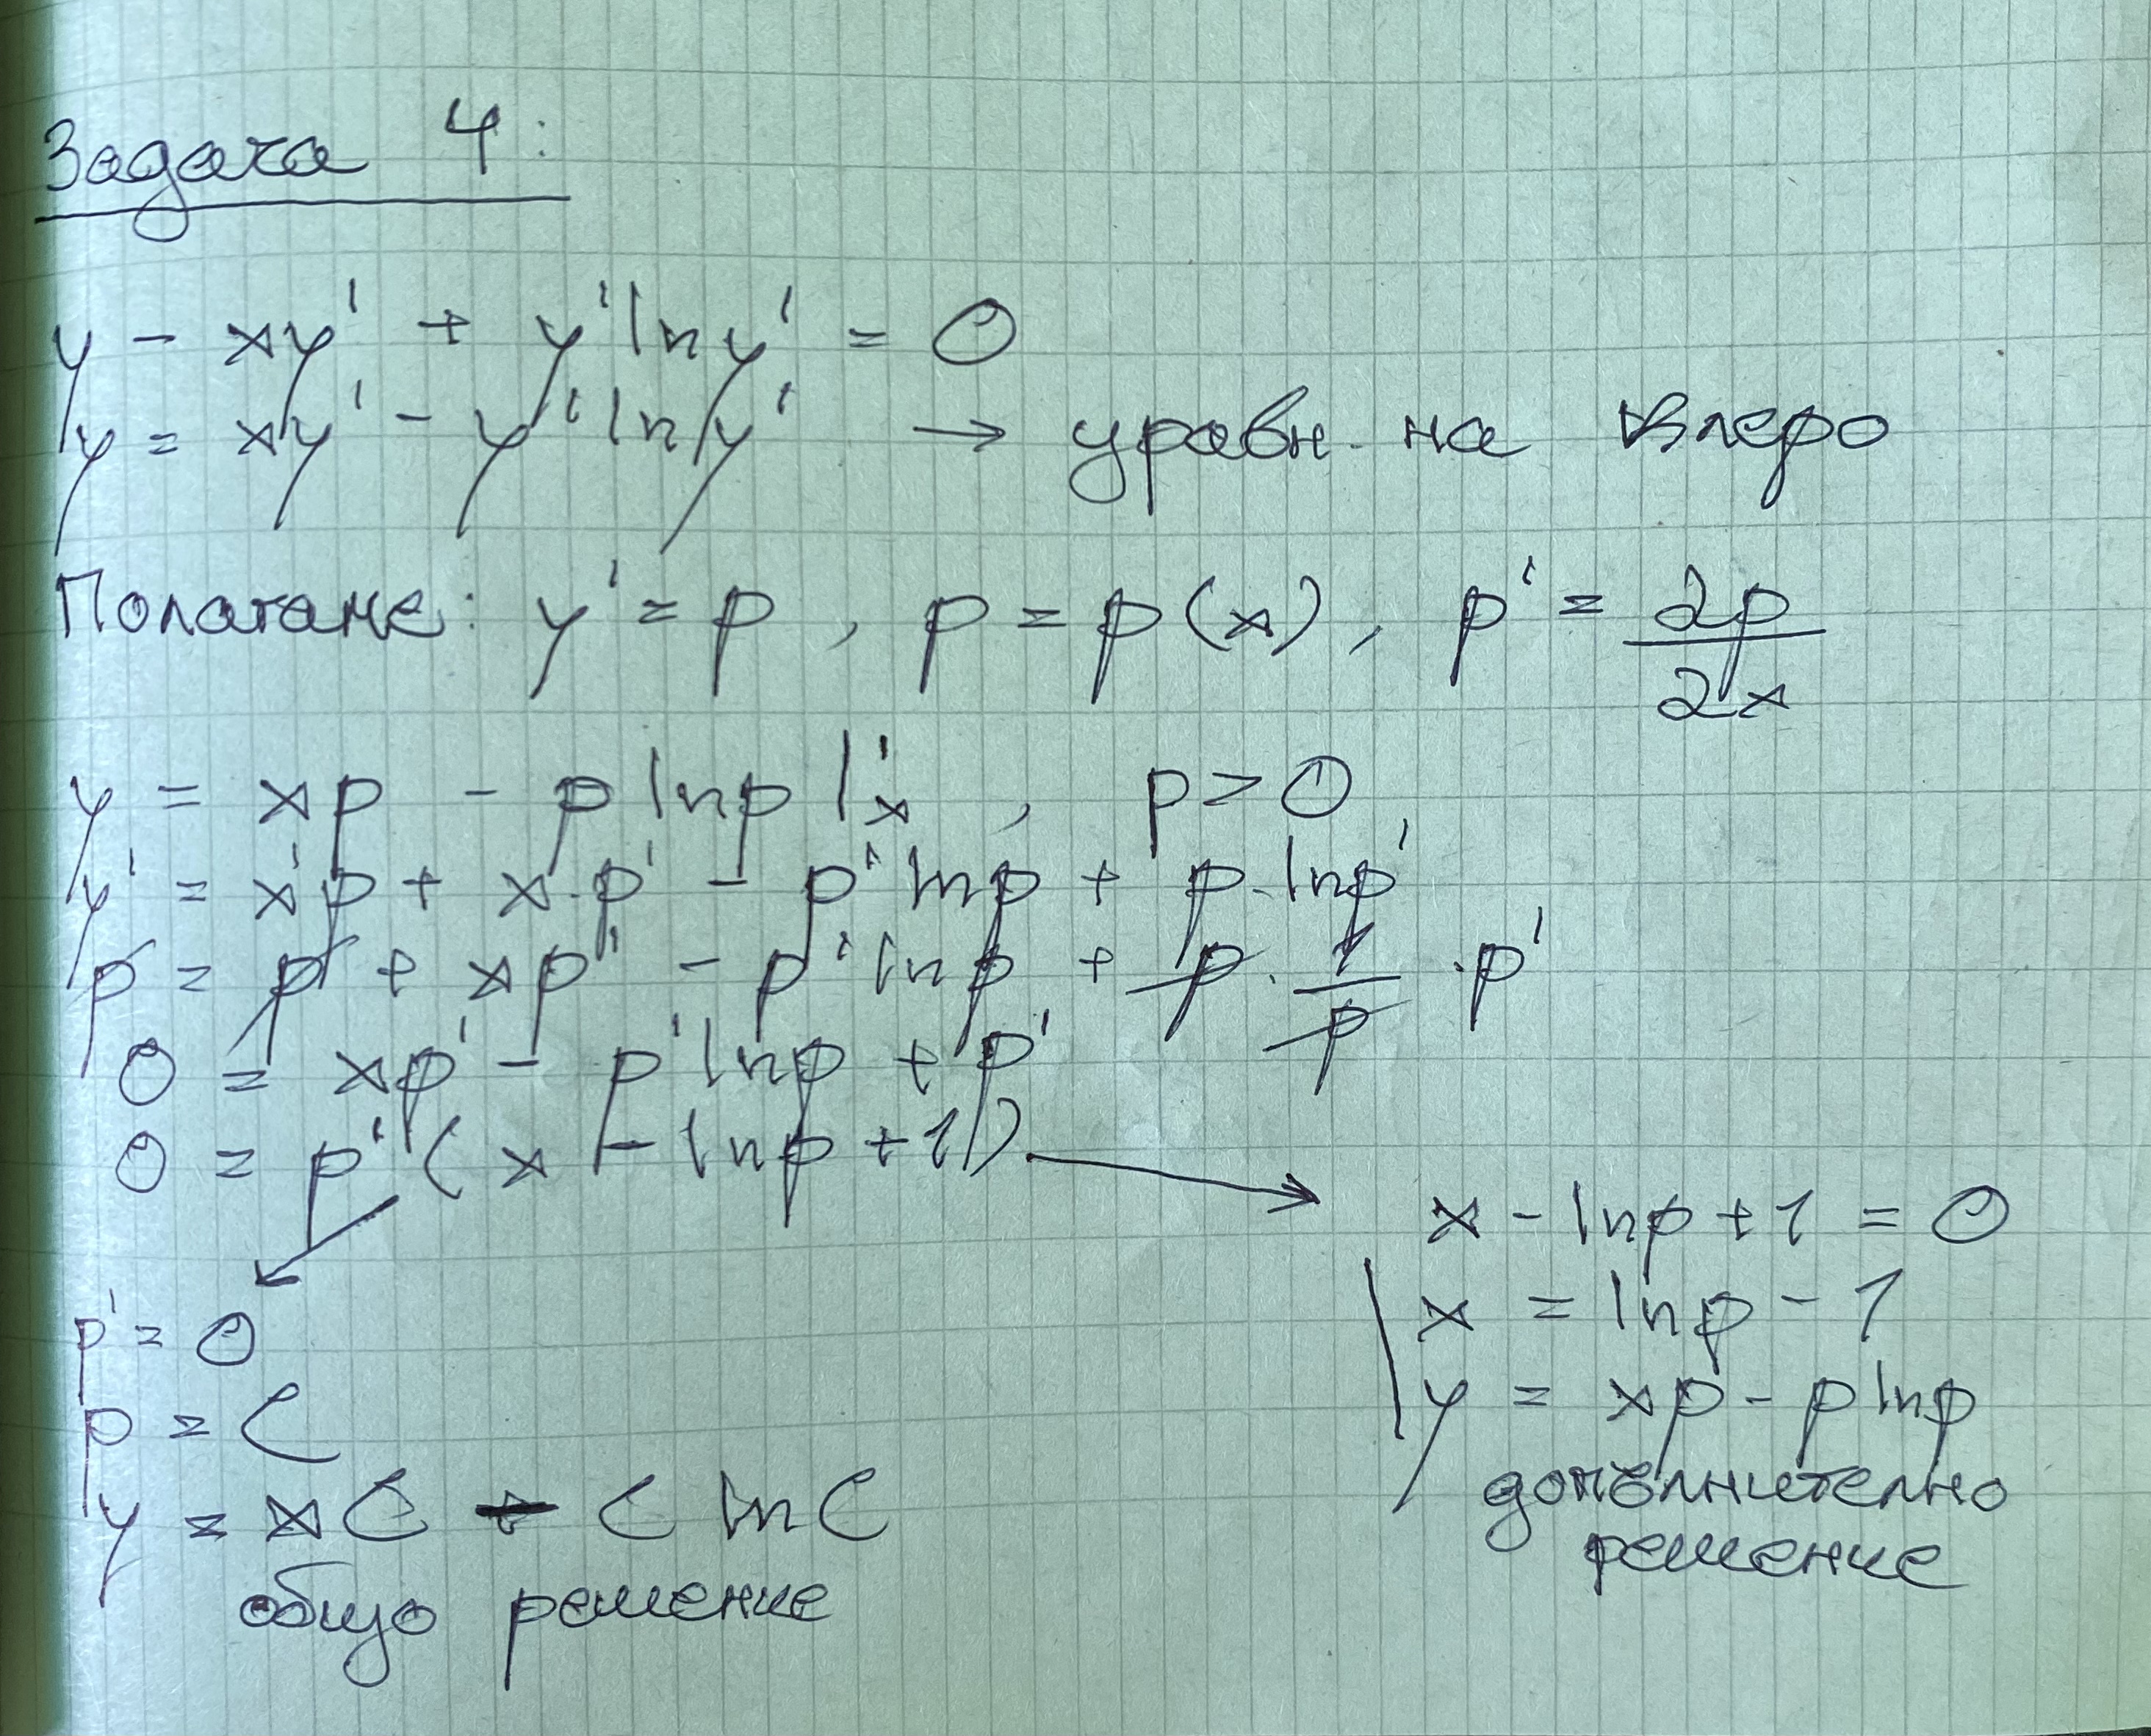 Задача 4:
y - xy' + y' ln y' = 0
y = xy' - y' ln y' → уравн. на Клеро
Полагаме: y' = p, p = p(x), p' = dp/dx
y = xp - p ln p |'x, p > 0
y' = x'p + x.p' - p' ln p + p. ln p'
p = p + xp' - p' ln p + p . 1/p . p'
0 = xp' - p' ln p + p'
0 = p' (x - ln p + 1)
p' = 0
p = C
y = xC - C ln C
общо решение
x - ln p + 1 = 0
x = ln p - 1
y = xp - p ln p
допълнително
решение